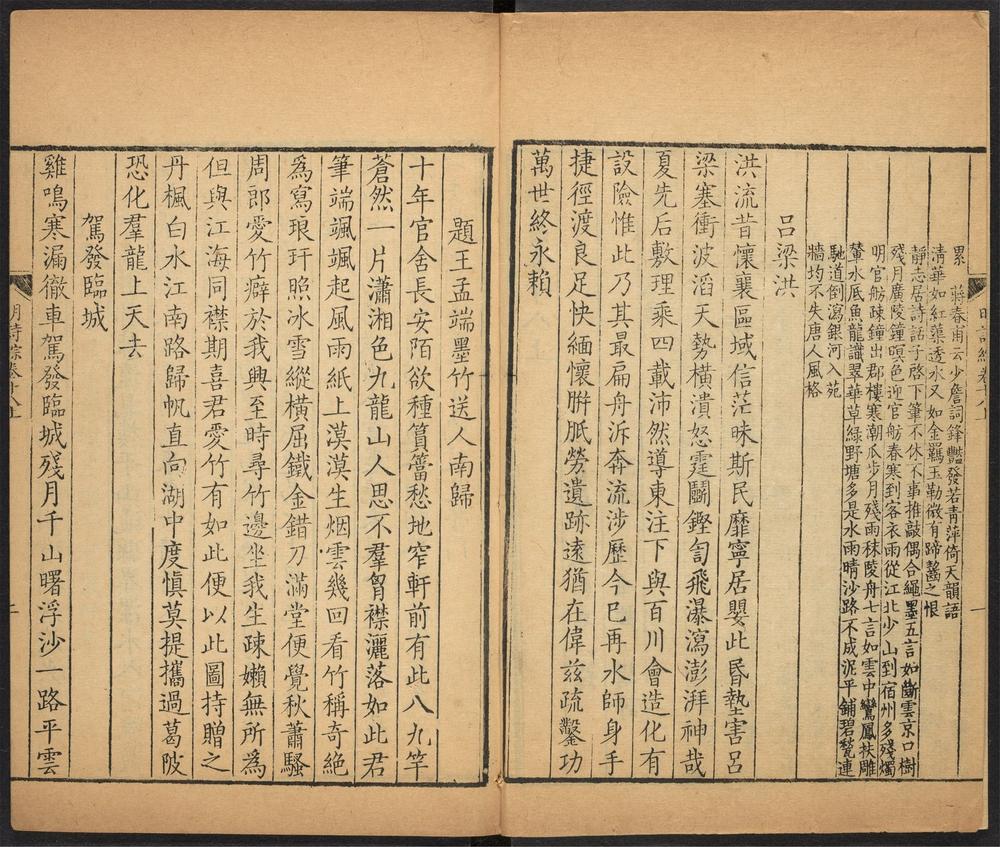 明詩綜卷十八上
一
累
蔣春甫云少詹詞鋒豔發若青萍倚天韻語
清華如紅蕖透水又如金羈玉勒微有蹄齧之恨
靜志居詩話子啓下筆不休不事推敲偶合繩墨五言如斷雲京口樹
殘月廣陵鐘暝色迎官舫春寒到客衣雨從江北少山到宿州多殘燭
明官舫疎鐘出郡樓寒潮瓜步月殘雨秣陵舟七言如雲中鸞鳳扶雕
輦水底魚龍識翠華草綠野塘多是水雨晴沙路不成泥平鋪碧甃連
馳道倒瀉銀河入苑
牆均不失唐人風格
呂梁洪
洪流昔懷襄區域信茫昧斯民靡寧居嬰此昬墊害呂
梁塞衝波滔天勢橫潰怒霆鬭鏗訇飛瀑瀉澎湃神哉
夏先后敷理乘四載沛然導東注下與百川會造化有
設險惟此乃其最扁舟泝奔流涉歷今巳再水師身手
捷徑渡良足快緬懷胼胝勞遺跡遠猶在偉兹疏鑿功
萬世終永賴
題王孟端墨竹送人南歸
十年官舍長安陌欲種篔簹愁地窄軒前有此八九竿
蒼然一片瀟湘色九龍山人思不羣胷襟灑落如此君
筆端颯颯起風雨紙上漠漠生烟雲幾回看竹稱奇絕
爲寫琅玕照冰雪縱橫屈鐵金錯刀滿堂便覺秋蕭騷
周郎愛竹癖於我興至時尋竹邊坐我生疎嬾無所爲
但與江海同襟期喜君愛竹有如此便以此圖持贈之
丹楓白水江南路歸帆直向湖中度愼莫提攜過葛陂
恐化羣龍上天去
駕發臨城
雞鳴寒漏徹車駕發臨城殘月千山曙浮沙一路平雲
明詩綜卷十八上
二